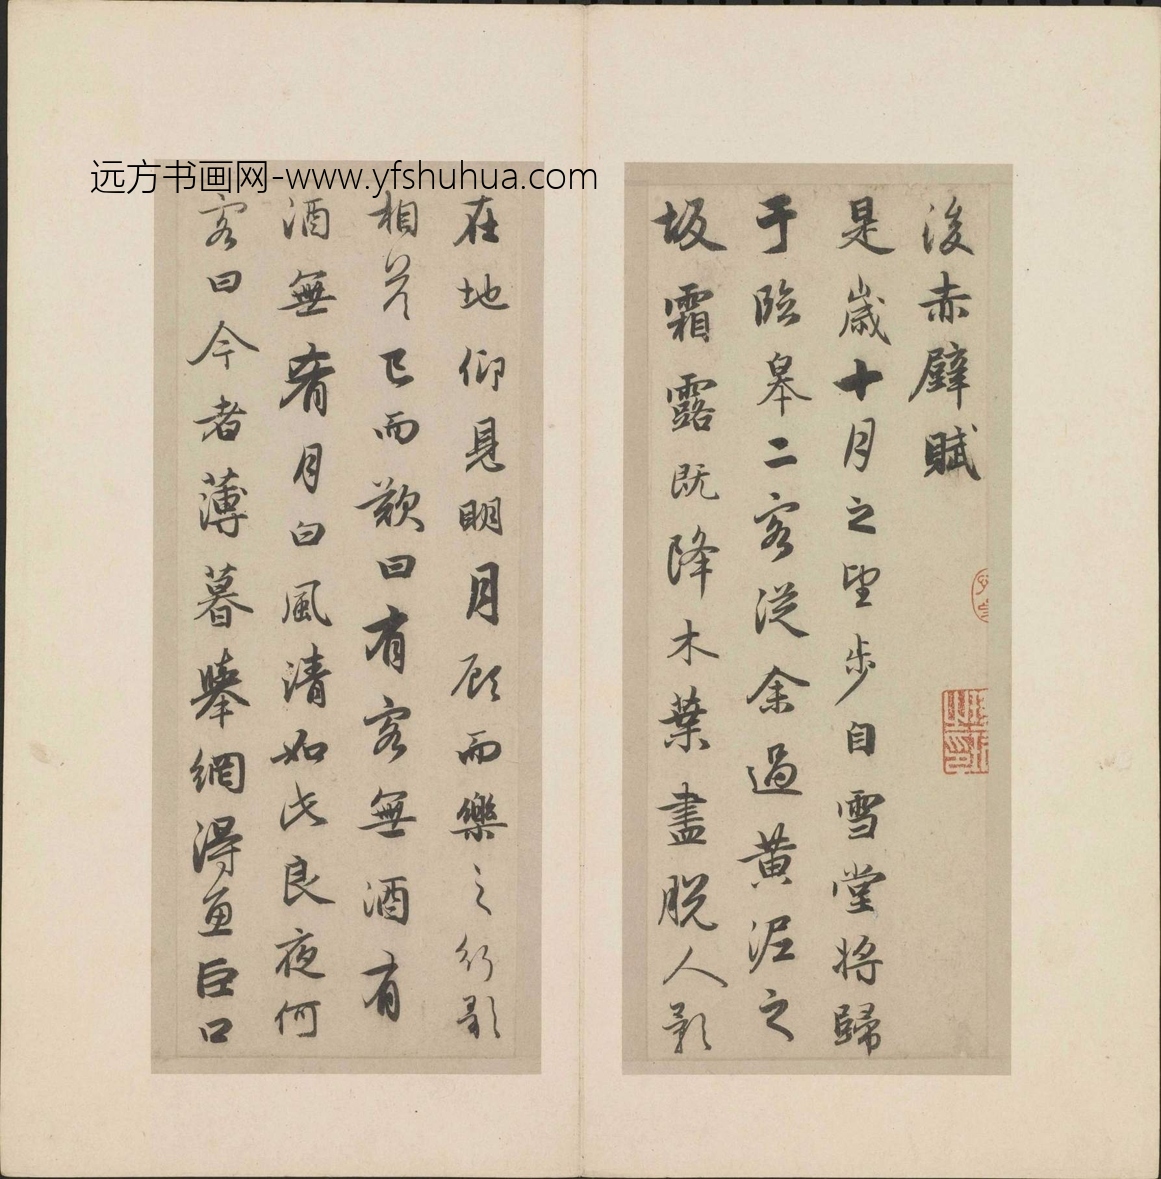 远方书画网-www.yfshuhua.com
後赤壁賦
是歲十月之望步自雪堂將歸
于臨皋二客從余過黃泥之
坂霜露既降木葉盡脫人影
在地仰見明月顧而樂之行歌
相答已而歎曰有客無酒有
酒無肴月白風清如此良夜何
客曰今者薄暮舉網得魚巨口